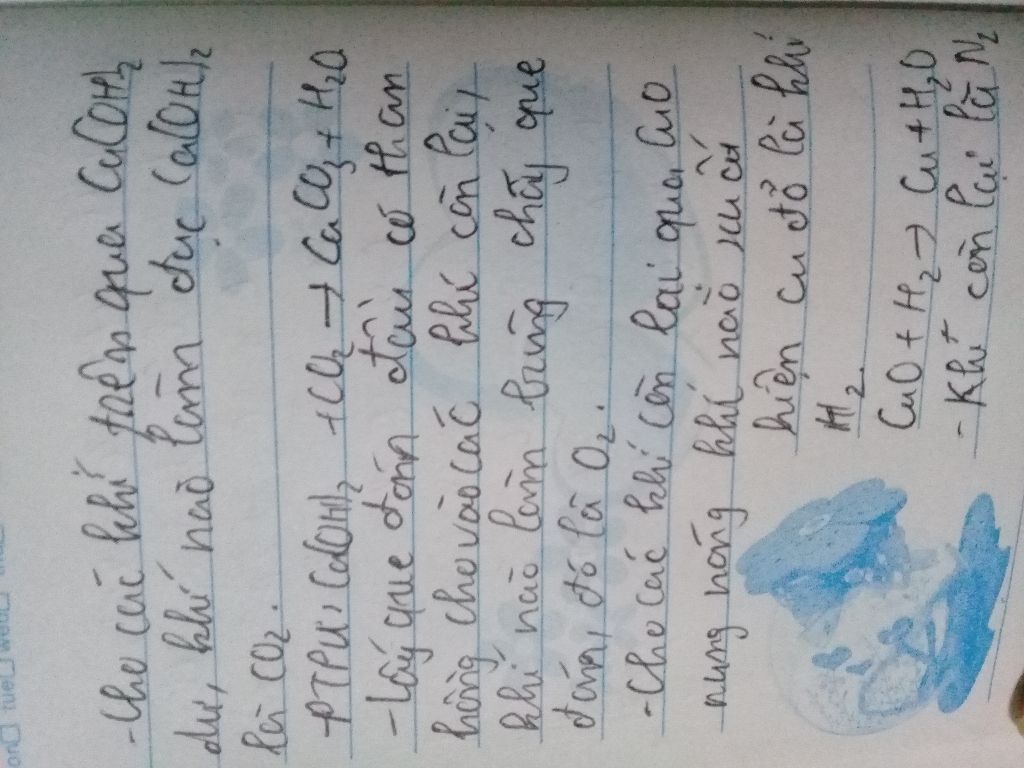 - Cho các khí trên qua Ca(OH)2
dư, khí nào làm đục Ca(OH)2
là CO2.
- PTPƯ: Ca(OH)2 + CO2 → CaCO3 + H2O
- Lấy que đóm đầu có than
hồng cho vào các khí còn lại,
khí nào làm bùng cháy que
đóm, đó là O2.
- Cho các khí còn lại qua CuO
nung nóng khí nào xuất
hiện Cu đỏ là khí
H2.
CuO + H2 → Cu + H2O
- Khí còn lại là N2